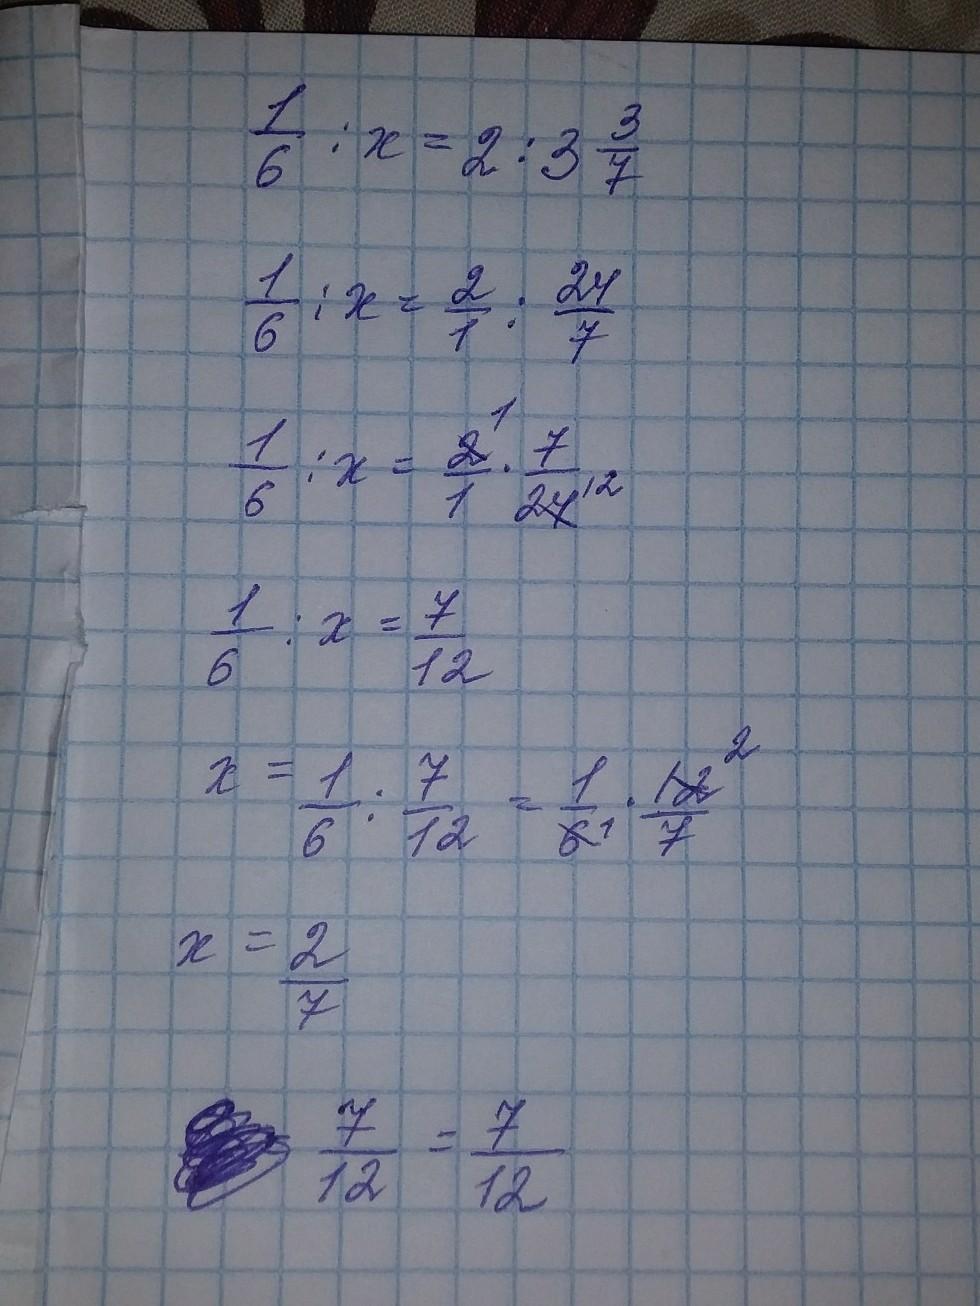 1/6 : x = 2 : 3 3/7
1/6 : x = 2/1 : 24/7
1/6 : x = 2 1/1 · 7/24 12
1/6 : x = 7/12
x = 1/6 : 7/12 = 1/6 1 · 12 2/7
x = 2/7
7/12 = 7/12